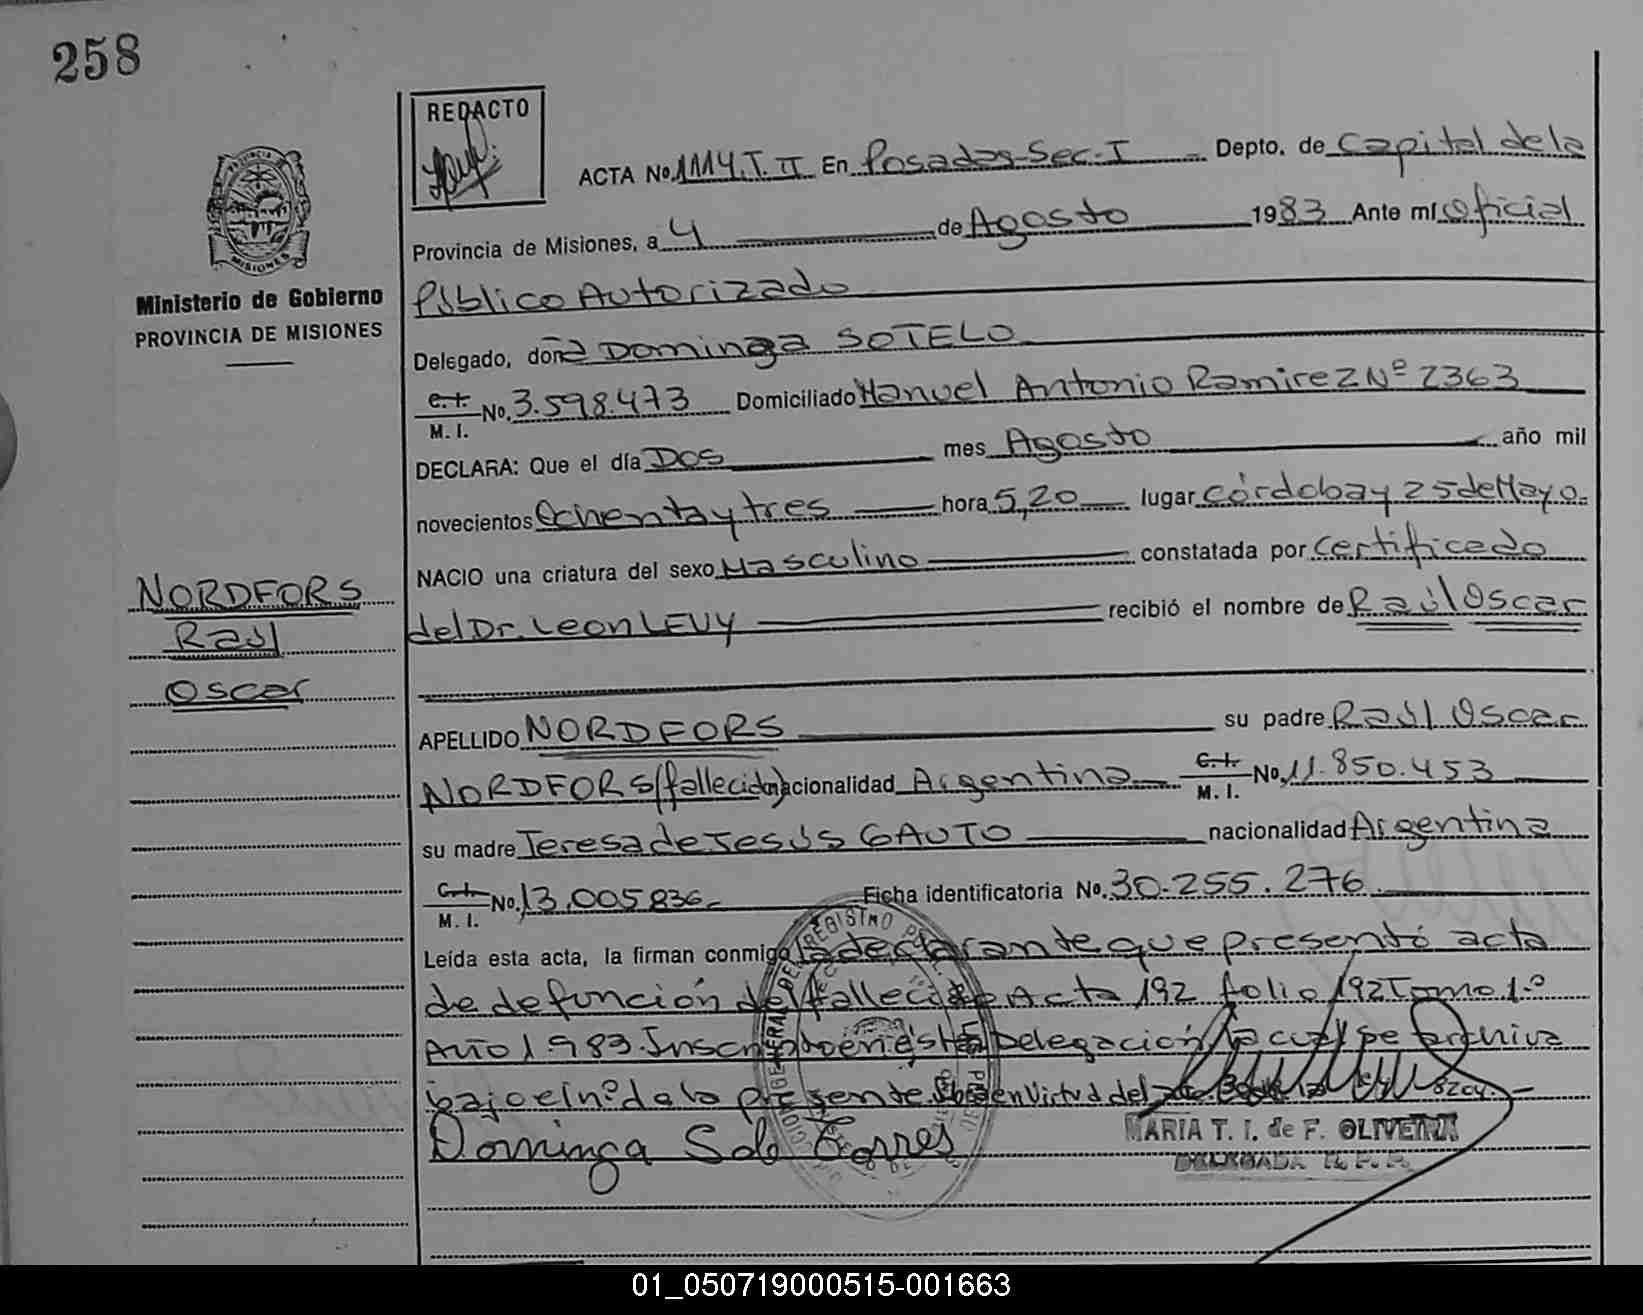 258
REDACTO
ACTA No. 1114. T. II En Posadas-Sec-I Depto. de Capital de la
Provincia de Misiones, a 4 de Agosto 1983 Ante mí Oficial
Público Autorizado
Delegado, doña Dominga SOTELO
C.I. M.I. No. 3.598.473 Domiciliado Manuel Antonio Ramirez Nº 2363
DECLARA: Que el día Dos mes Agosto año mil
novecientos Ochenta y tres hora 5,20 lugar Córdoba y 25 de Mayo.
NACIO una criatura del sexo Masculino constatada por certificado
del Dr. Leon LEVY recibió el nombre de Raúl Oscar
APELLIDO NORDFORS su padre Raúl Oscar
NORDFORS (fallecido) nacionalidad Argentina C.I. M.I. No. 11.850.453
su madre Teresa de Jesús GAUTO nacionalidad Argentina
C.I. M.I. No. 13.005.836.- Ficha identificatoria No. 30.255.276
Leída esta acta, la firman conmigo la declarante que presentó acta
de defunción del fallecido Acta 192 folio 192 Tomo 1.º
Año 1.983. Inscripto en esta Delegación la cual se archiva
bajo el nº de la presente en virtud del 8204.-
Dominga Torres
MARIA T. I. de F. OLIVEIRA
DELEGADA R. P. P.
MISIONES
Ministerio de Gobierno
PROVINCIA DE MISIONES
NORDFORS
Raúl
Oscar
01_050719000515-001663